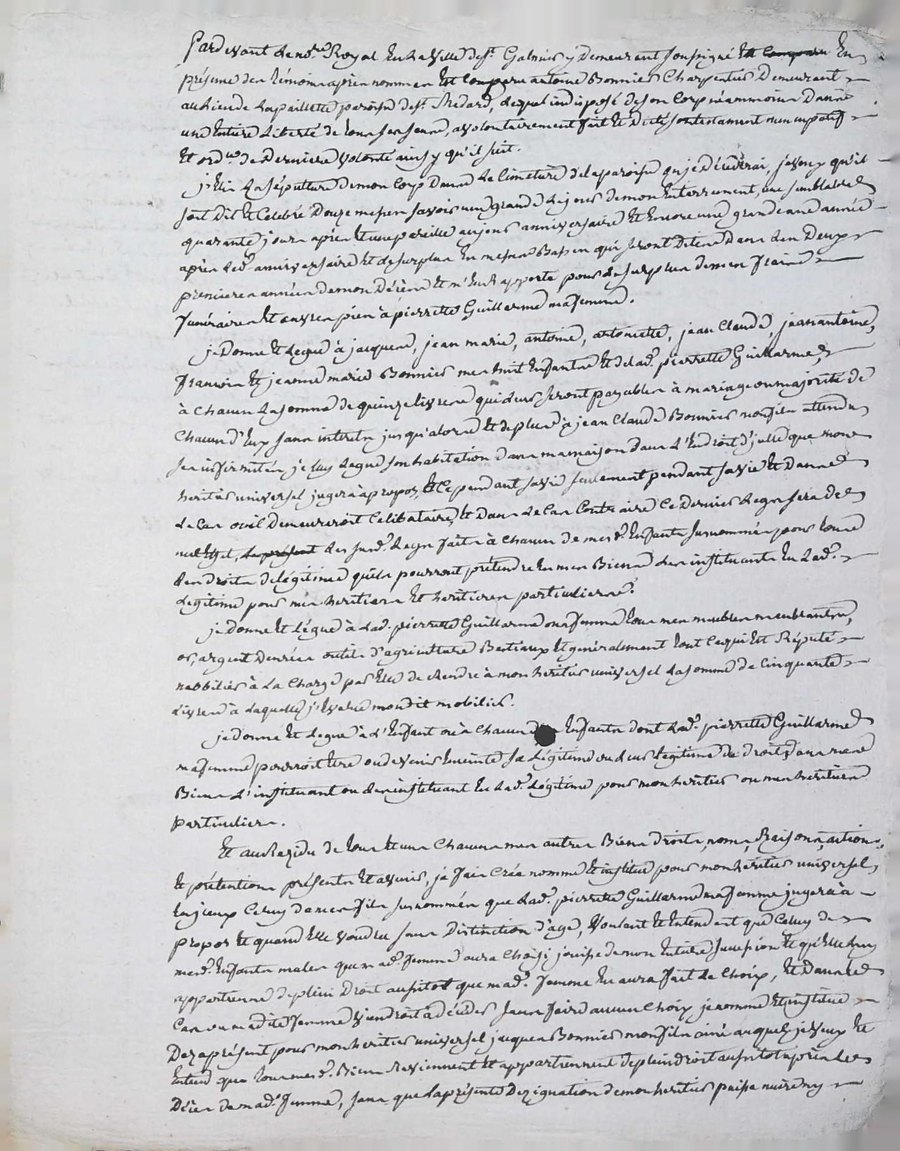 Pardevant le no.re Royal en la ville de st. Galmier y demeurant soussigné et comparu En
présence des témoins après nommés est comparu antoine Bonnier Charpentier demeurant
au lieu de la paillette paroisse de st. Médard, lequel indisposé de son corp néammoins dans
une entière Liberté de tous ses sens, a volontairement fait et dicté son testament nuncupatif
et ord.ce de derniere volonté ainsy qu'il suit.
j'Elis la sépulture de mon corp dans le cimetière de la paroisse ou je décéderai, je veux qu'il
soit dit et Célébré Douze messes savoir une grande le jour de mon Enterrement, une semblable
quarante jours après et une pareille au jour anniversaire et Encore une grande une année
après led. anniversaire et le surplus En messes Basses qui seront dites dans les deux
premieres années de mon Décès et m'En Rapporte pour le surplus de mes frais
funéraires et œuvres pies à pierrette Guillarme ma femme.
je Donne et Legue à jacques, jean marie, antoine, antoinette, jean Claude, jean antoine,
francois et jeanne marie Bonnier mes huit Enfants et de lad. pierrette Guillarme
à chacun la somme de quinze livres qui leur seront payables à mariage ou majorité de
chacun d'Eux sans interets jusqu'alors et de plus à jean Claude Bonnier mon fils attendu
ses infirmités je luy Legue son habitation dans ma maison dans l'Endroit d'icelle que mon
heritier universel jugera à propos, et ce pendant sa vie seulement pendant sa vie et dans
le cas ou il demeureroit Celibataire, et dans le cas Contraire ce dernier Legs sera de
nul effet, le présent les susd. Legs faits à chacun de mesd. Enfants surnommés pour tous
les droits de légitime qu'ils pourront prétendre en mes Biens les instituants En lad.
Légitime pour mes heritiers et heritieres particulieres.
je donne et Légue à lad. pierrette Guillarme ma femme tous mes meubles meublants,
or, argent denrées outils d'agriculture Bestiaux et généralement tout ce qui Est Réputé
mobilier à La Charge par Elle de Rendre à mon heritier universel la somme de Cinquante
Livres à laquelle j'Evalue mondit mobilier.
je donne et Legue à l'Enfant ou à chacun Enfants dont lad. pierrette Guillarme
ma femme pourroit être ou devenir Enceinte sa Légitime ou leurs Légitime de droits dans mes
Biens l'instituant ou les instituant En lad. Légitime pour mon heritier ou mes heritiers
particuliers.
Et au Rezidu de tous et uns chacuns mes autres Biens droits noms, Raisons, actions,
et prétentions présents et avenir, je fais Crée nomme et institue pour mon heritier universel,
Celuy de mes fils surnommés que lad. pierrette Guillarme ma femme jugera à
propos et quand Elle voudra sans Distinction d'age, Voulant et Entendant que Celuy de
mesd. Enfants males que mad. femme aura choisi jouisse de mon Entiere succession et qu'Elle luy
appartienne de plein Droit aussitot que mad. femme En aura fait le choix, Et dans le
Cas ou madite femme viendroit à décéder sans faire aucun Choix je nomme et institue
Dez à présent pour mon heritier universel jacques Bonnier mon fils ainé auquel je veux et
Entend que tous mesd. Biens Reviennent et appartiennent de plein droit aussitot après le
Décès de mad. femme, sans que la présente Dezignation de mon heritier puisse nuire ny